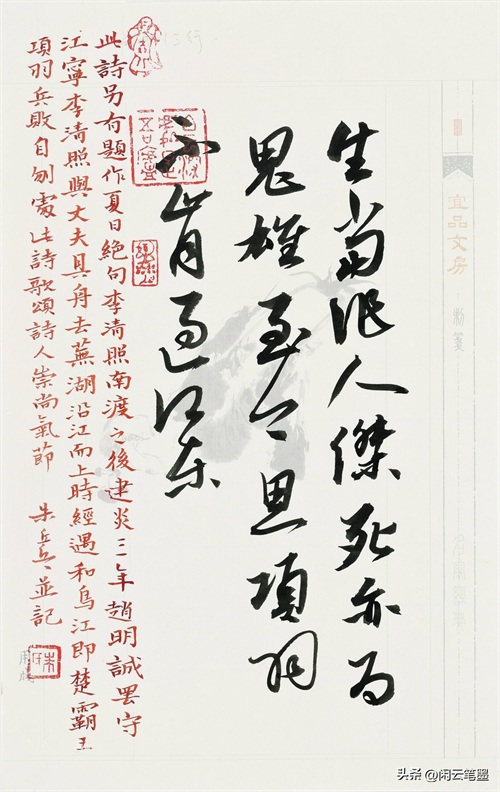 宜品文房
生當作人傑死亦為
鬼雄至今思項羽
不肯過江東
此詩另有題作夏日絕句李清照南渡之後建炎三年趙明誠罷守
江寧李清照與丈夫具舟去蕪湖沿江而上時經遇和烏江即楚霸王
項羽兵敗自刎處此詩歌頌詩人崇尚氣節 朱 並記
头条 @闲云笔墨